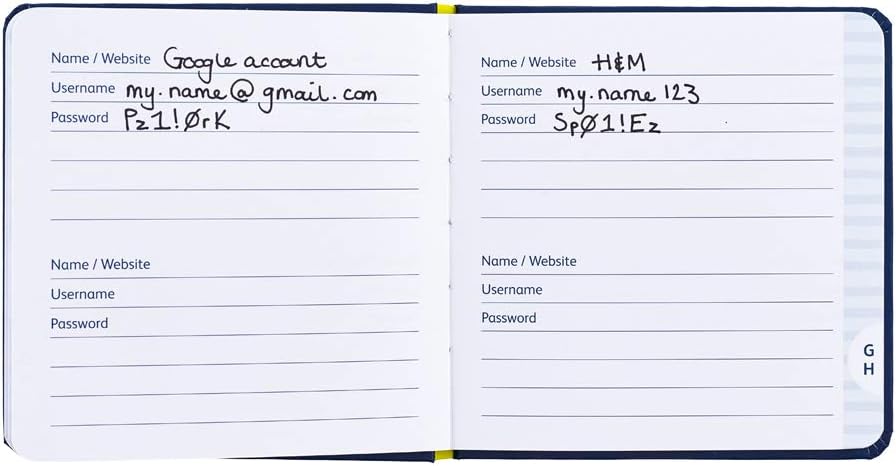 Name / Website Google account
Username my.name@gmail.com
Password Pz1!ØrK
Name / Website
Username
Password
Name / Website H&M
Username my.name123
Password SpØ1!Ez
Name / Website
Username
Password
G
H